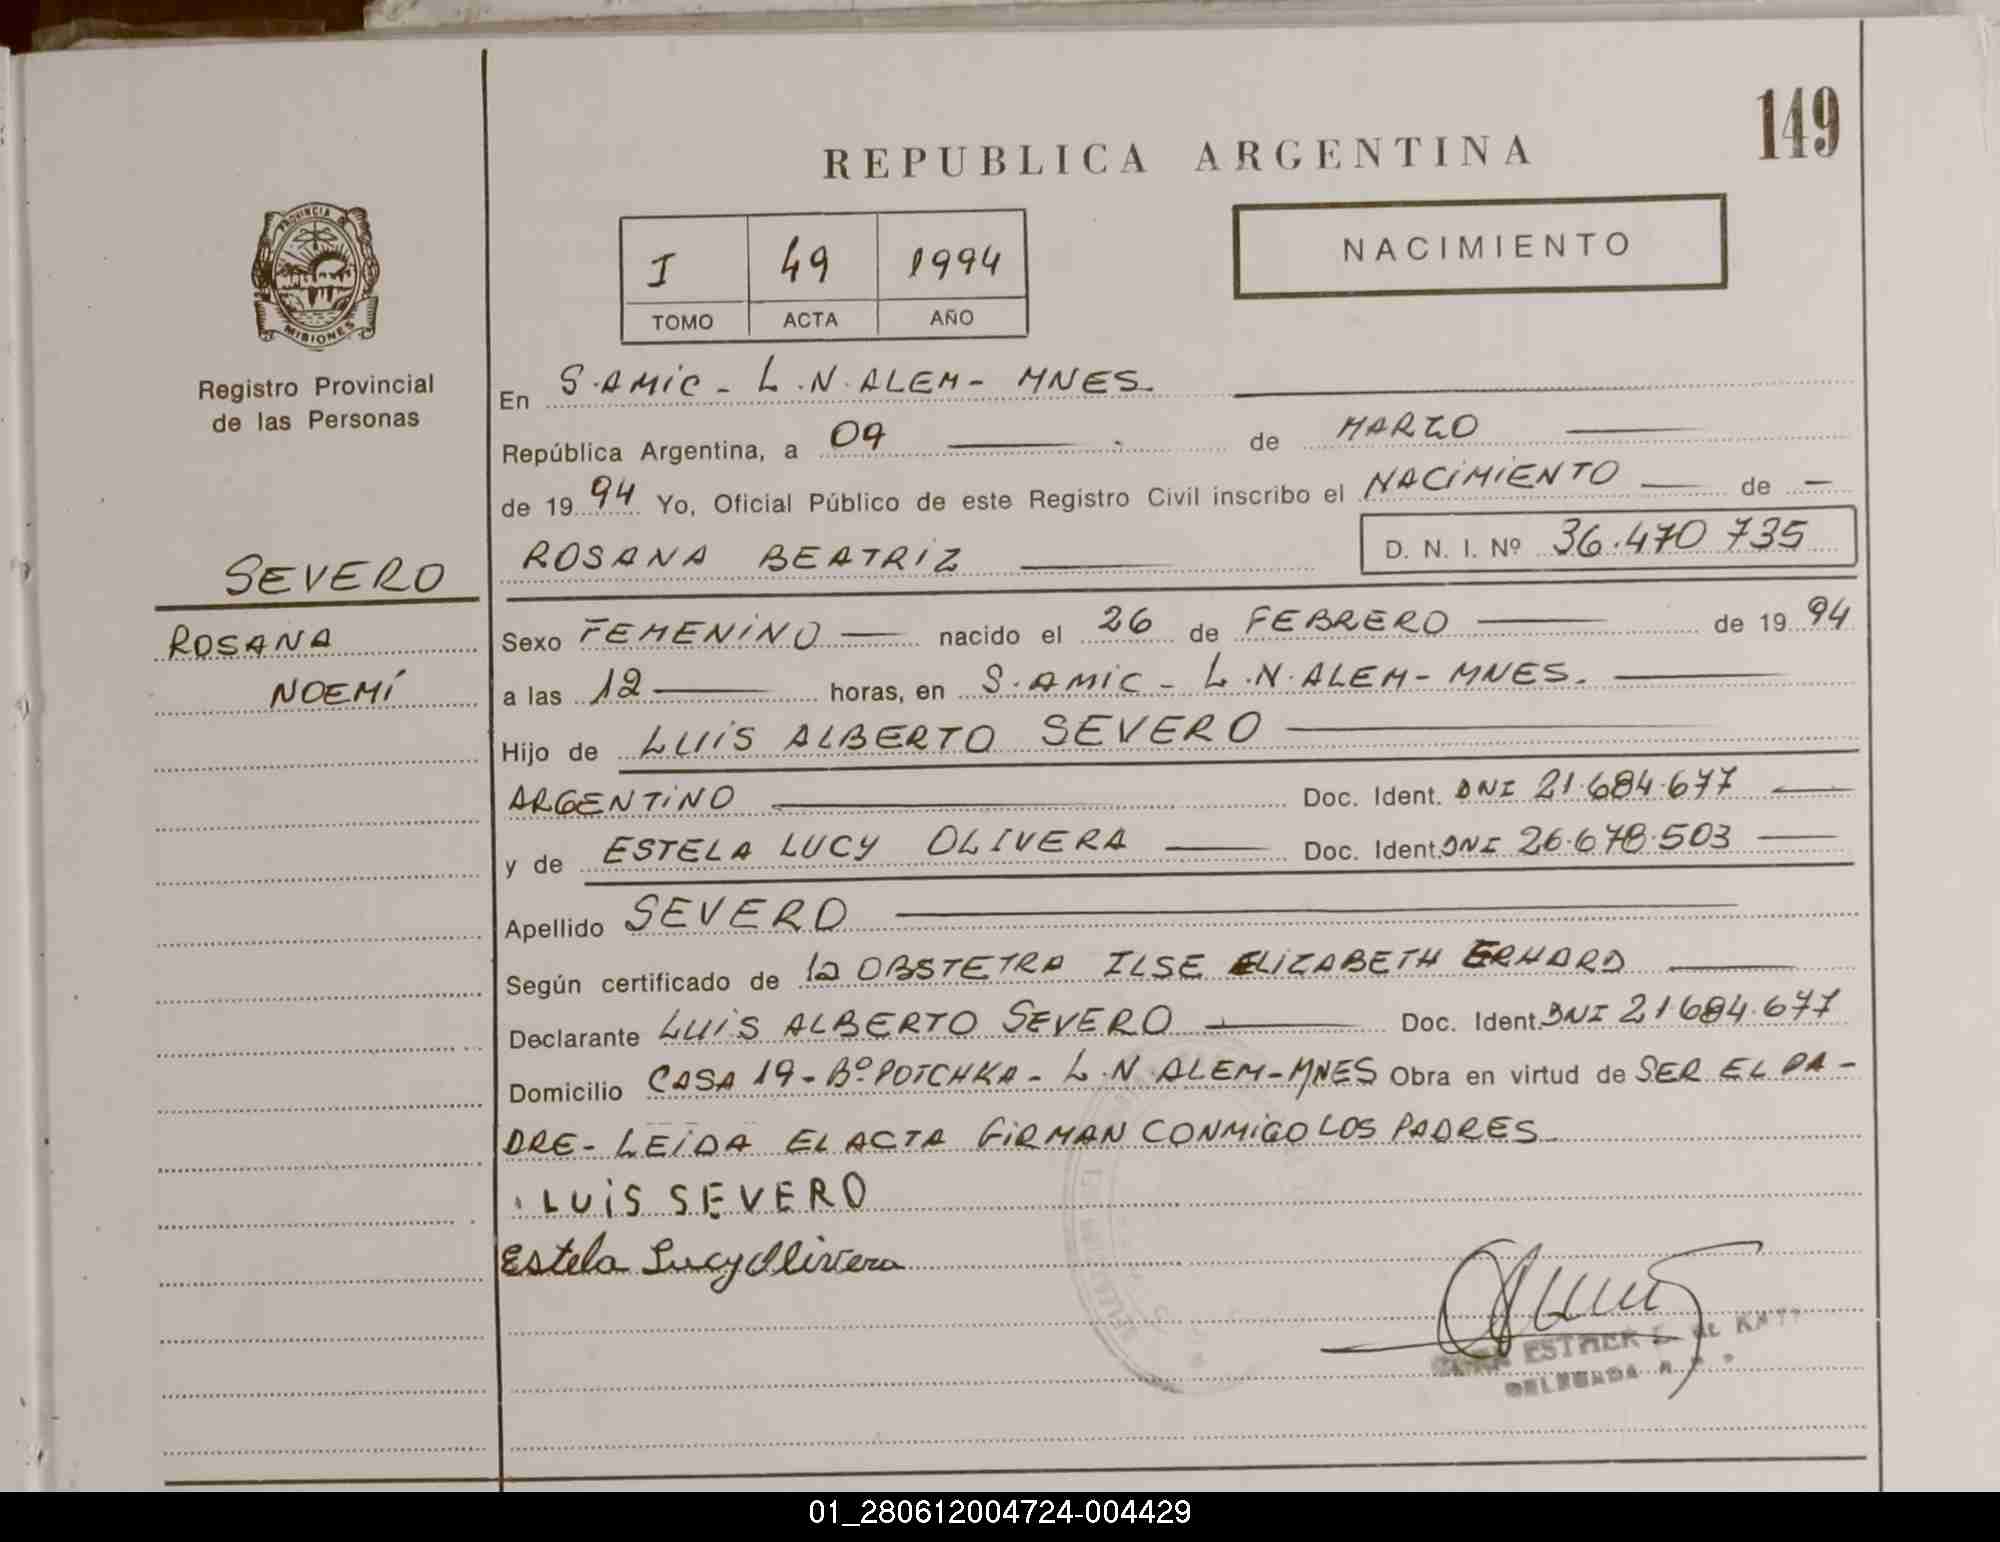 149
REPUBLICA ARGENTINA
NACIMIENTO
I 49 1994
TOMO ACTA AÑO
PROVINCIA DE
MISIONES
Registro Provincial
de las Personas
SEVERO
ROSANA
NOEMÍ
En S. AMIC - L.N. ALEM - MNES.
República Argentina, a 09 de MARZO
de 1994 Yo, Oficial Público de este Registro Civil inscribo el NACIMIENTO de -
ROSANA BEATRIZ D. N. I. Nº 36.470 735
Sexo FEMENINO nacido el 26 de FEBRERO de 1994
a las 12 horas, en S. AMIC - L.N. ALEM - MNES.
Hijo de LUIS ALBERTO SEVERO
ARGENTINO Doc. Ident. DNI 21.684.677
y de ESTELA LUCY OLIVERA Doc. Ident. DNI 26.678.503
Apellido SEVERO
Según certificado de la OBSTETRA ILSE ELIZABETH ERHARD
Declarante LUIS ALBERTO SEVERO Doc. Ident. DNI 21.684.677
Domicilio CASA 19 - Bº POTCHKA - L.N ALEM - MNES Obra en virtud de SER EL PA-
DRE - LEIDA EL ACTA FIRMAN CONMIGO LOS PADRES
LUIS SEVERO
Estela Lucy Olivera
ESTHER
DELEGADA
01_280612004724-004429